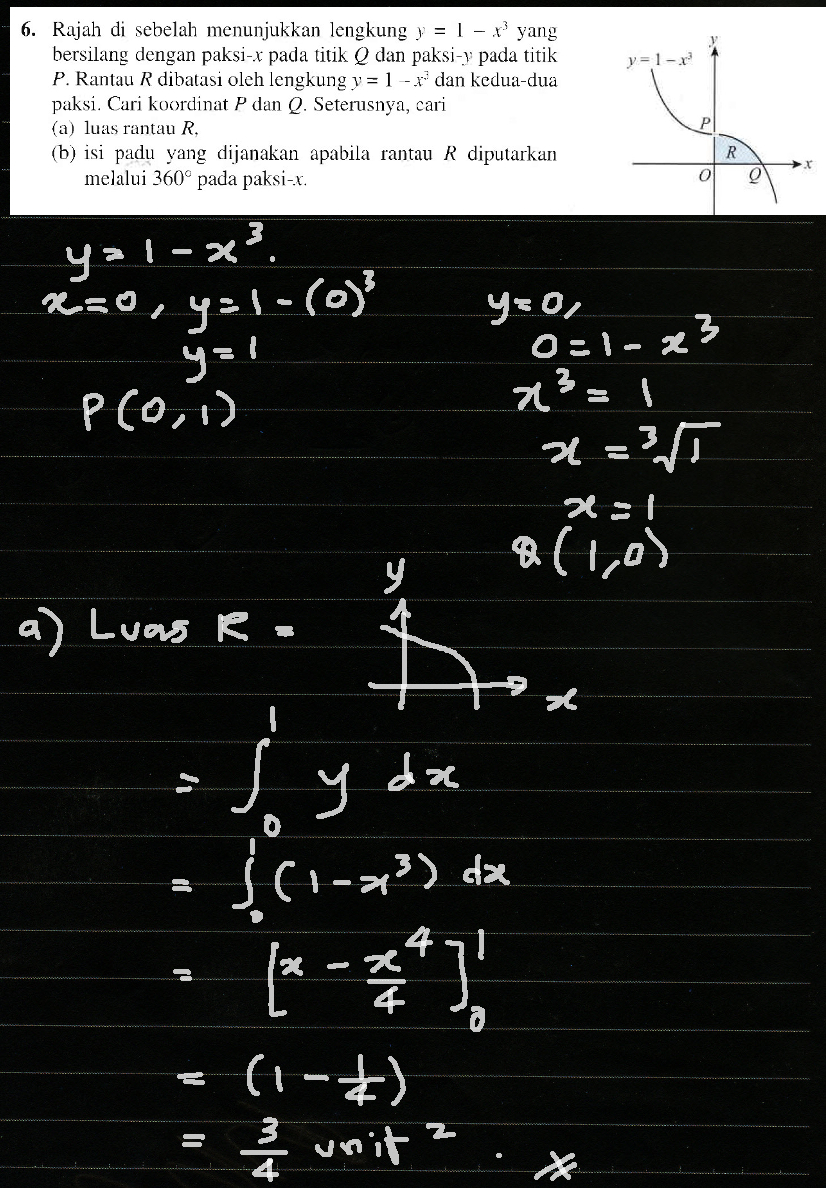 6. Rajah di sebelah menunjukkan lengkung y = 1 – x³ yang
bersilang dengan paksi-x pada titik Q dan paksi-y pada titik
P. Rantau R dibatasi oleh lengkung y = 1 – x³ dan kedua-dua
paksi. Cari koordinat P dan Q. Seterusnya, cari
(a) luas rantau R,
(b) isi padu yang dijanakan apabila rantau R diputarkan
melalui 360° pada paksi-x.
y
y = 1 – x³
P
R
x
O
Q
y = 1 - x³.
x = 0, y = 1 - (0)³
y = 1
P (0, 1)
y = 0,
0 = 1 - x³
x³ = 1
x = ³√1
x = 1
Q (1, 0)
a) Luas R =
y
x
= ∫₀¹ y dx
= ∫₀¹ (1 - x³) dx
= [x - x⁴/4]₀¹
= (1 - 1/4)
= 3/4 unit².